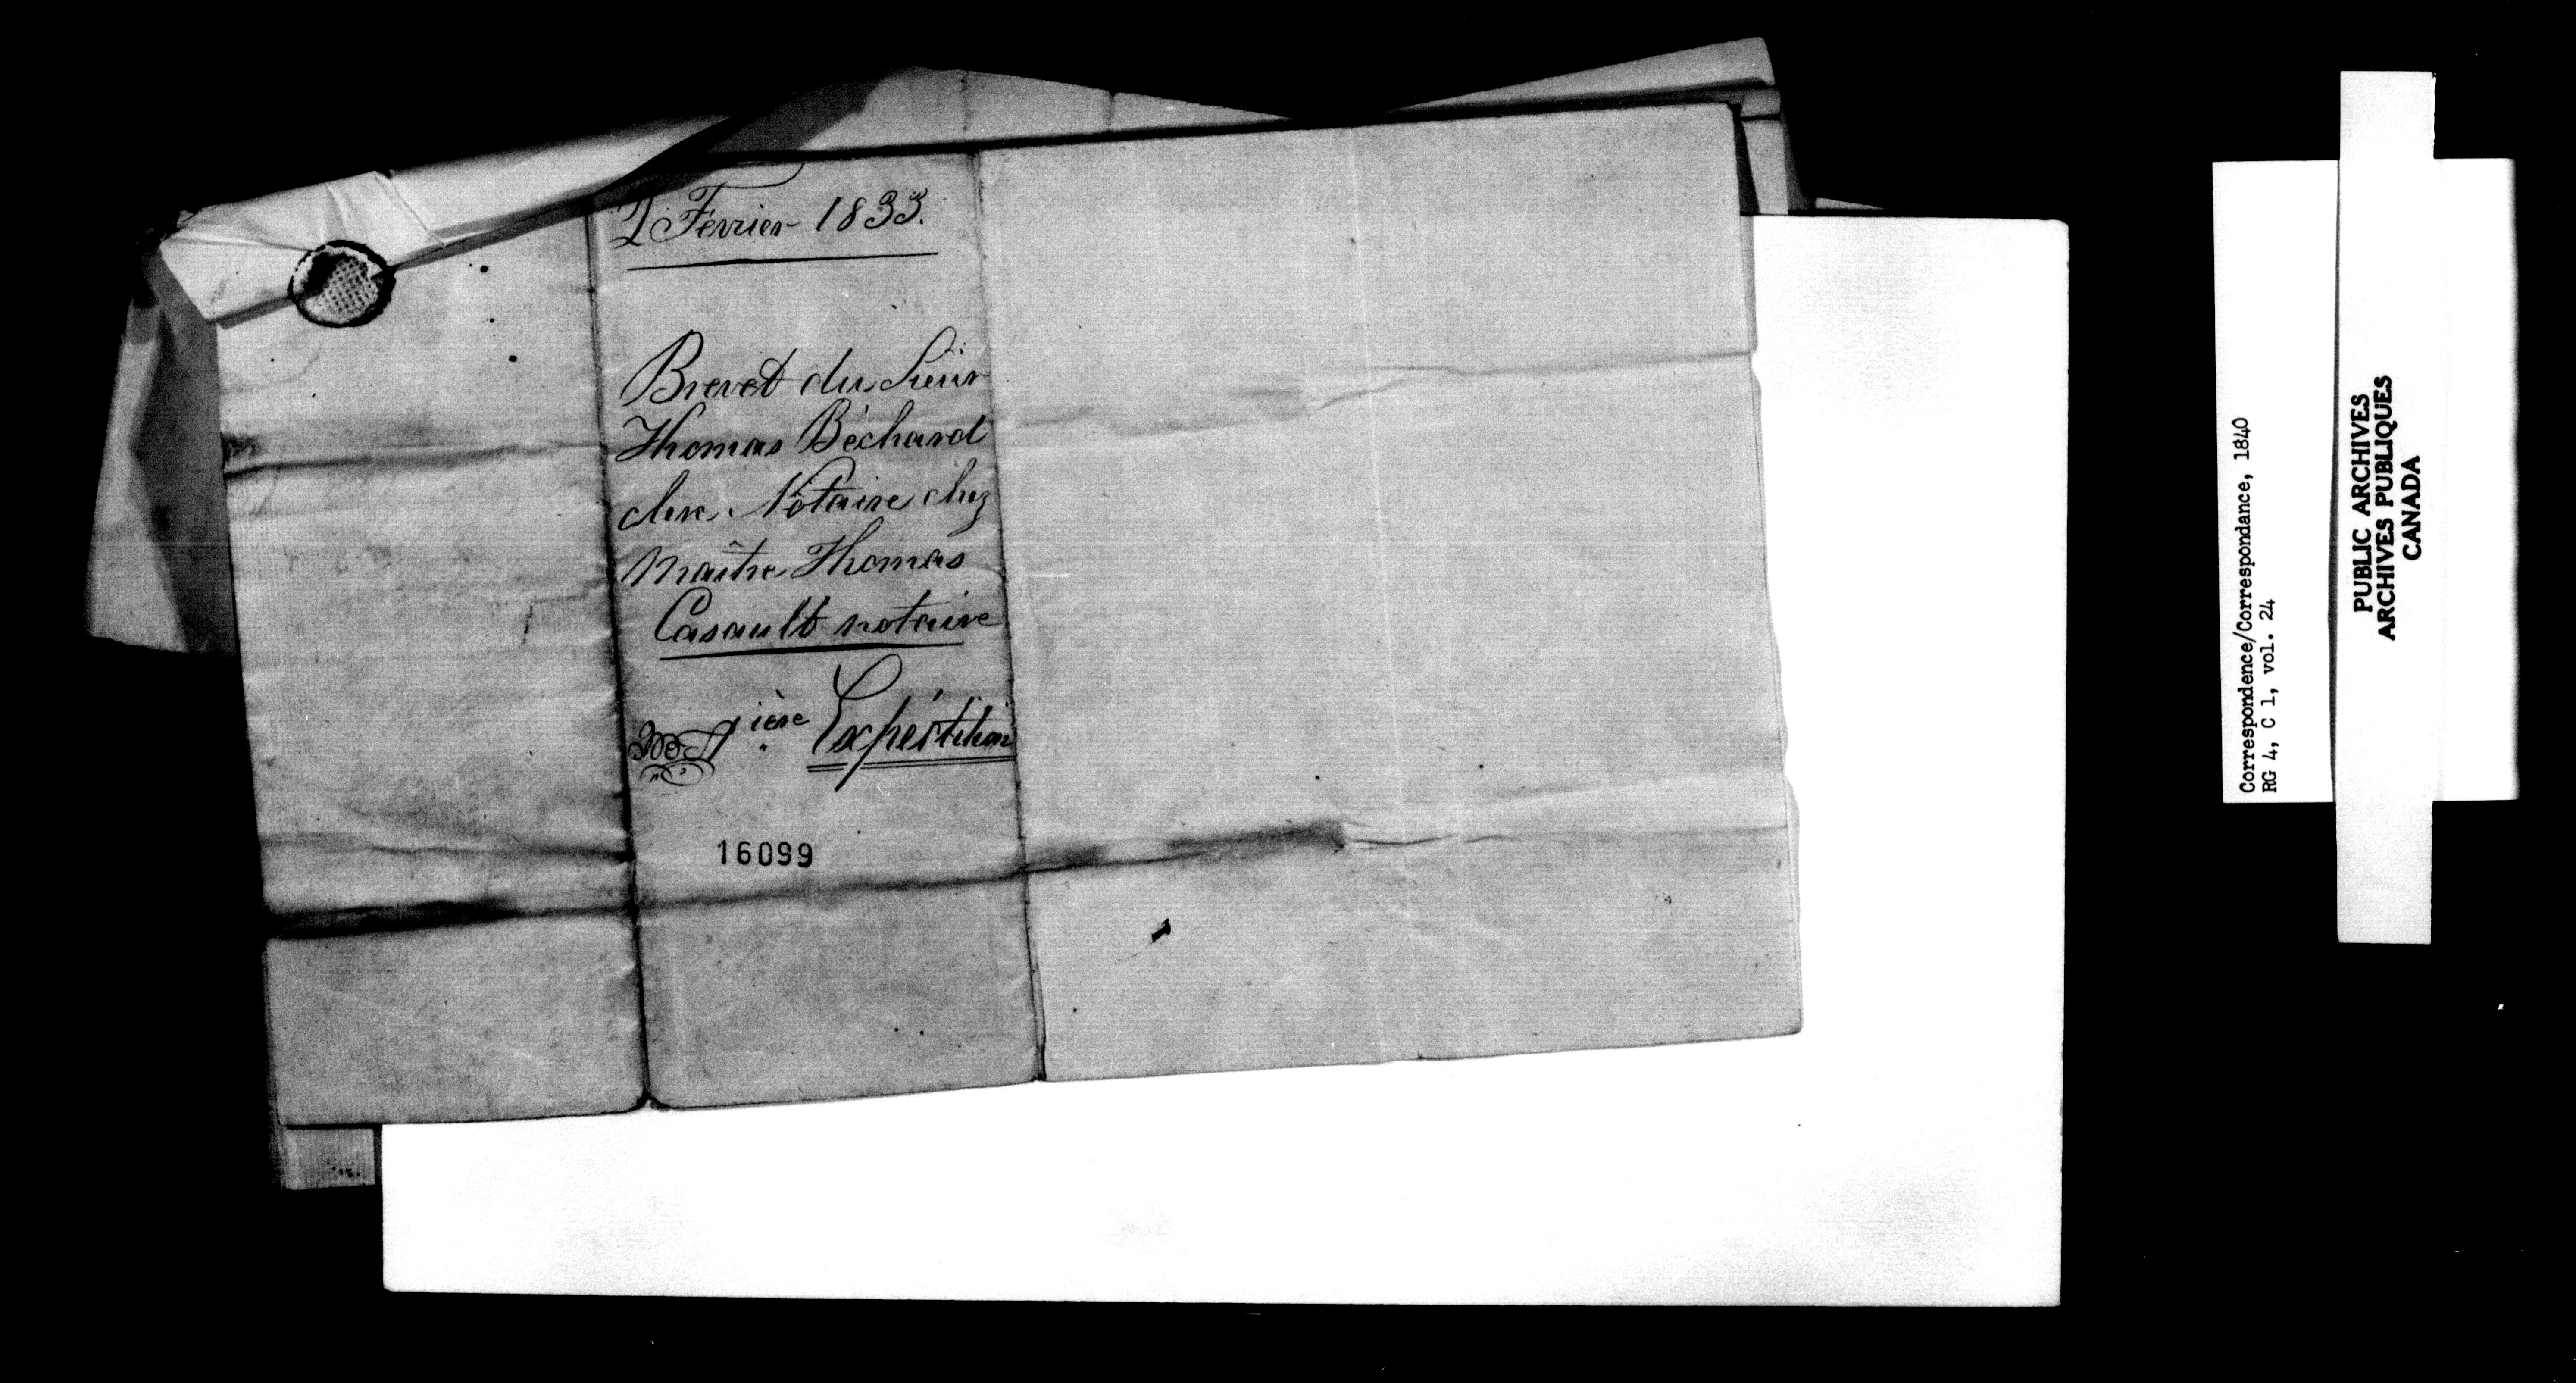 2 Février 1833.
Brevet du Sieur
Thomas Béchard
clerc Notaire chez
Maître Thomas
Casault notaire
ière Expédition
16099
Correspondence/Correspondance, 1840
RG 4, C 1, vol. 24
PUBLIC ARCHIVES
ARCHIVES PUBLIQUES
CANADA